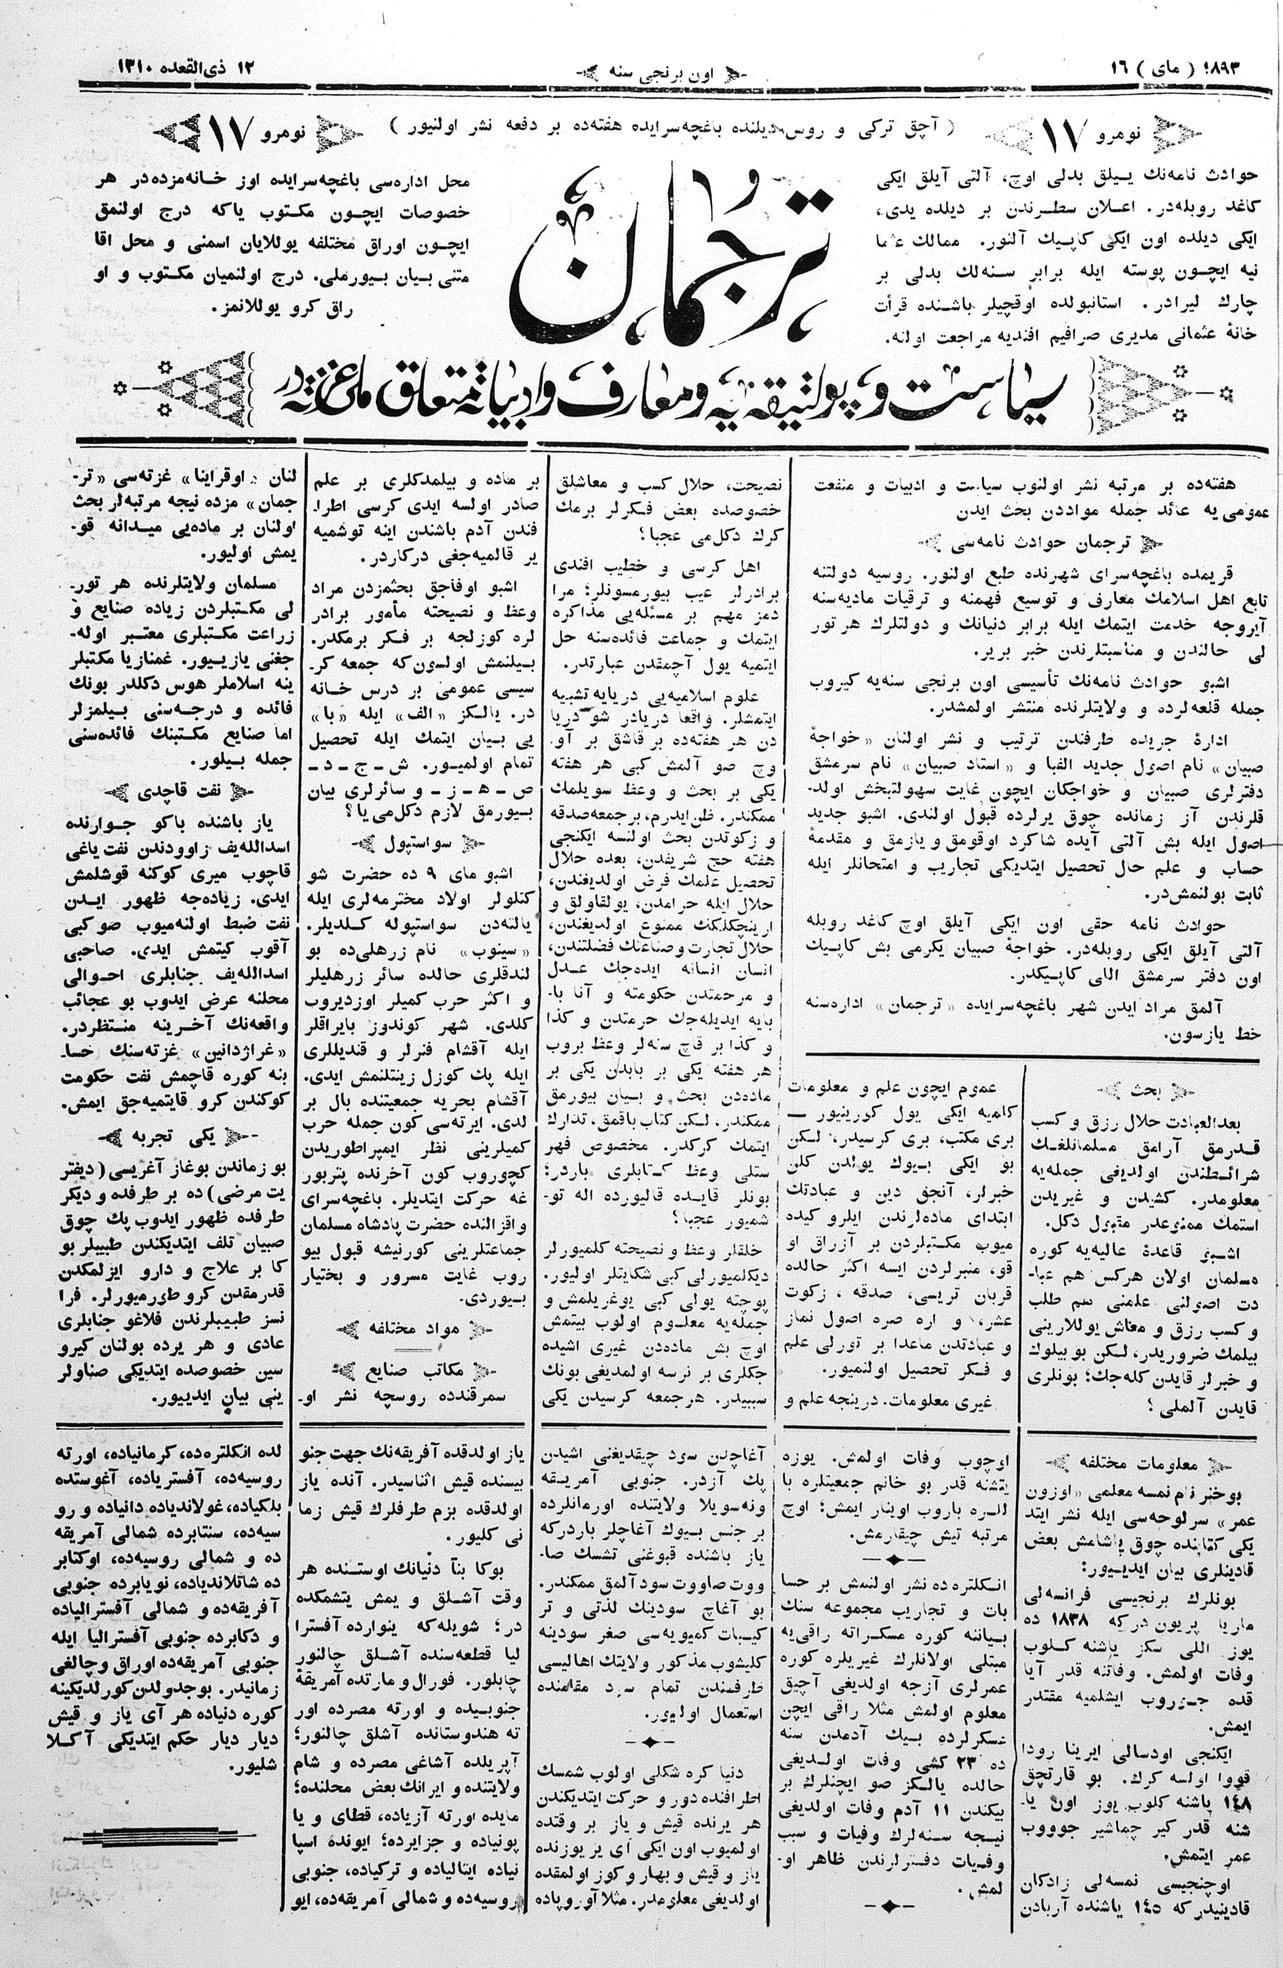 ١٨٩٣ ( مای ) ١٦
اون برنجی سنه
١٢ ذی القعده ١٣١٠
نومرو ١٧
( آچق ترکی و روس دیلنده باغچه‌سرایده هفته‌ده بر دفعه نشر اولنیور )
نومرو ١٧
حوادث نامه‌نك ییلق بدلی اوچ، آلتی آیلق ایکی
کاغد روبله‌در. اعلان سطرندن بر دیلده یدی،
ایکی دیلده اون ایکی کاپیك آلنور. ممالك عثما
نیه ایچون پوسته ایله برابر سنه‌لك بدلی بر
چارك لیرادر. استانبولده اوقچیلر باشنده قرأت
خانهٔ عثمانی مدیری صرافیم افندیه مراجعت اولنه.
ترجمان
محل اداره‌سی باغچه‌سرایده اوز خانه‌مزده‌در هر
خصوصات ایچون مکتوب یاکه درج اولنمق
ایچون اوراق مختلفه یوللایان اسمنی و محل اقا
متنی بیان بیورملی. درج اولنمیان مکتوب و او
راق کرو یوللانمز.
سیاست و پولتیقه‌یه و معارف و ادبیاته متعلق ملی غزته‌در
هفته‌ده بر مرتبه نشر اولنوب سیاست و ادبیات و منفعت
عمومی‌یه عائد جمله مواددن بحث ایدن
ترجمان حوادث نامه‌سی
قریمده باغچه‌سرای شهرنده طبع اولنور. روسیه دولتنه
تابع اهل اسلامك معارف و توسیع فهمنه و ترقیات مادیه‌سنه
آیروجه خدمت ایتمك ایله برابر دنیانك و دولتلرك هر تور
لی حالندن و مناسبتلرندن خبر بریر.
اشبو حوادث نامه‌نك تأسیسی اون برنجی سنه‌یه کیروب
جمله قلعه‌لرده و ولایتلرنده منتشر اولمشدر.
ادارهٔ جریده طرفندن ترتیب و نشر اولنان «خواجهٔ
صبیان» نام اصول جدید الفبا و «استاد صبیان» نام سرمشق
دفترلری صبیان و خواجکان ایچون غایت سهولتبخش اولد-
قلرندن آز زمانده چوق یرلرده قبول اولندی. اشبو جدید
اصول ایله بش آلتی آیده شاکرد اوقومق و یازمق و مقدمهٔ
حساب و علم حال تحصیل ایتدیکی تجاریب و امتحانلر ایله
ثابت بولنمش‌در.
حوادث نامه حقی اون ایکی آیلق اوچ کاغد روبله
آلتی آیلق ایکی روبله‌در. خواجهٔ صبیان یکرمی بش کاپیك
اون دفتر سرمشق اللی کاپیکدر.
آلمق مراد ایدن شهر باغچه‌سرایده «ترجمان» اداره‌سنه
خط یازسون.
بحث
بعدالعبادت حلال رزق و کسب
قدرمق آرامق مسلمانلغك
شرائطندن اولدیغی جمله‌یه
معلومدر. کشیدن و غیریدن
استمك ممنوعدر مقبول دکل.
اشبو قاعدهٔ عالیه‌یه کوره
مسلمان اولان هرکس هم عبا-
دت اصولنی علمنی هم طلب
و کسب رزق و معاش یوللارینی
بیلمك ضروریدر، لکن بو بیلوك
و خبرلر قایدن کله‌جك؛ بونلری
قایدن آلملی؟
عموم ایچون علم و معلومات
کامیه ایکی یول کورینیور —
بری مکتب، بری کرسیدر، لکن
بو ایکی بیوك یولدن کلن
خبرلر، آنجق دین و عبادتك
ابتدای ماده‌لرندن ایلرو کیده
میوب مکتبلردن بر آزراق او
قو، منبرلردن ایسه اکثر حالده
قربان تریسی، صدقه ، زکوت
عشر، و اره صره اصول نماز
و عبادتدن ماعدا بر تورلی علم
و فکر تحصیل اولنمیور.
غیری معلومات، درینجه علم و
نصیحت، حلال کسب و معاشلق
خصوصده بعض فکرلر برمك
کرك دکل‌می عجبا؟
اهل کرسی و خطیب افندی
برادرلر عیب بیورمسونلر؛ مرا
دمز مهم بر مسئله‌یی مذاکره
ایتمك و جماعت فائده‌سنه حل
ایتمیه یول آچمقدن عبارتدر.
علوم اسلامیه‌یی دریایه تشبیه
ایتمشلر. واقعا دریادر شو دریا
دن هر هفته‌ده بر قاشق بر آو-
وچ صو آلمش کبی هر هفته
یکی بر بحث و وعظ سویلمك
ممکندر. ظن ایدرم، بر جمعه صدقه
و زکوتدن بحث اولنسه ایکنجی
هفته حج شریفدن، بعده حلال
تحصیل علمك فرض اولدیغندن،
حلال ایله حرامدن، یولقاولق و
ارینچکلکك ممنوع اولدیغندن،
حلال تجارت و صناعتك فضلتندن،
انسان انسانه ایده‌جك عدل
و مرحمتدن حکومته و آنا با-
بایه ایدیله‌جك حرمتدن و کذا
و کذا بر قاچ سنه‌لر وعظ بروب
هر هفته یکی بر بابدن یکی بر
ماده‌دن بحث و بیان بیورمق
ممکندر، لکن کتاب باقمق، تدارك
ایتمك کرکدر. مخصوص فهر
ستلی وعظ کتابلری باردر؛
بونلر قایده قالیورده اله تو-
شمیور عجبا؟
خلقلر وعظ و نصیحته کلمیورلر
دیکلمیورلی کبی شکایتلر اولیور.
پوچته یولی کبی یوغریلمش و
جمله‌یه معلوم اولوب بیتمش
اوچ بش ماده‌دن غیری اشیده
جکلری بر نرسه اولمدیغی بونك
سببیدر. هر جمعه کرسیدن یکی
بر ماده و بیلمدکلری بر علم
صادر اولسه ایدی کرسی اطرا-
فندن آدم باشندن اینه توشمیه
یر قالمیه‌جغی درکاردر.
اشبو اوفاجق بحثمزدن مراد
وعظ و نصیحته مأمور برادر
لره کوزلجه بر فکر برمکدر.
بیلنمش اولسون که جمعه کر-
سیسی عمومی بر درس خانه
در. یالکز «الف» ایله «با»
یی بیان ایتمك ایله تحصیل
تمام اولمیور. ش - ج - د -
ص - ه - ز - و سائرلری بیان
بیورمق لازم دکل‌می یا؟
سواستپول
اشبو مای ٩ ده حضرت شو
کتلولر اولاد محترمه‌لری ایله
یالته‌دن سواستپوله کلدیلر.
«سینوب» نام زرهلی‌ده بو
لندقلری حالده سائر زرهلیلر
و اکثر حرب کمیلر اوزدیروب
کلدی. شهر کوندوز بایراقلر
ایله آقشام فنرلر و قندیللری
ایله پك کوزل زینتلنمش ایدی.
آقشام بحریه جمعیتنده بال بر
لدی. ایرته‌سی کون جمله حرب
کمیلرینی نظر ایمپراطوریدن
کچوروب کون آخرنده پتربور
غه حرکت ایتدیلر. باغچه‌سرای
واقزالنده حضرت پادشاه مسلمان
جماعتلرینی کورنیشه قبول بیو
روب غایت مسرور و بختیار
بیوردی.
مواد مختلفه
مکاتب صنایع
سمرقندده روسچه نشر او-
لنان «اوقراینا» غزته‌سی «تر-
جمان» مزده نیجه مرتبه‌لر بحث
اولنان بر ماده‌یی میدانه قو-
یمش اولیور.
مسلمان ولایتلرنده هر تور-
لی مکتبلردن زیاده صنایع و
زراعت مکتبلری معتبر اوله-
جغنی یازییور. غمنازیا مکتبلر
ینه اسلاملر هوس دکلدر بونك
فائده و درجه‌سنی بیلمزلر
اما صنایع مکتبنك فائده‌سنی
جمله بیلور.
نفت قاچدی
یاز باشنده باکو جوارنده
اسدالله‌یف زاوودندن نفت یاغی
قاچوب میری کوکنه قوشلمش
ایدی. زیاده‌جه ظهور ایدن
نفت ضبط اولنه‌میوب صو کبی
آقوب کیتمش ایدی. صاحبی
اسدالله‌یف جنابلری احوالی
محلنه عرض ایدوب بو عجائب
واقعه‌نك آخرینه منتظردر.
«غراژدانین» غزته‌سنك حسا-
بنه کوره قاچمش نفت حکومت
کوکندن کرو قایتمیه‌جق ایمش.
یکی تجربه
بو زماندن بوغاز آغریسی (دیفتر
یت مرضی) ده بر طرفده و دیکر
طرفده ظهور ایدوب پك چوق
صبیان تلف ایتدیکندن طبیبلر بو
کا بر علاج و دارو ایزلمکدن
قدرمقدن کرو طورمیورلر. فرا
نسز طبیبلرندن فلاغو جنابلری
عادی و هر یرده بولنان کیرو
سین خصوصده ایتدیکی صناولر
ینی بیان ایدییور.
معلومات مختلفه
بو خبر نام نمسه معلمی «اوزون
عمر» سرلوحه‌سی ایله نشر ایتد
یکی کتابنده چوق یاشامش بعض
قادینلری بیان ایدییور:
بونلرك برنجیسی فرانسه‌لی
ماریا پریون درکه ١٨٣٨ ده
یوز اللی سکز یاشنه کلوب
وفات اولمش. وفاتنه قدر آیا
قده جوروب ایشلمیه مقتدر
ایمش.
ایکنجی اودسالی ایرینا رودا
قووا اولسه کرك. بو قارتچق
١٤٨ یاشنه کلوب یوز اون یا-
شنه قدر کیر چماشیر جوووب
عمر ایتمش.
اوچنجیسی نمسه‌لی زادکان
قادینیدر که ١٤٥ یاشنده آربادن
اوچوب وفات اولمش. یوزه
یتشنه قدر بو خانم جمعیتلره با
للره باروب اوینار ایمش؛ اوچ
مرتبه تیش چیقارمش.
انکلتره‌ده نشر اولنمش بر حسا
بات و تجاریب مجموعه سنك
بیاننه کوره مسکراته راقی‌یه
مبتلی اولانلرك غیریلره کوره
عمرلری آزجه اولدیغی آچیق
معلوم اولمش مثلا راقی ایچن
عسکرلرده بیك آدمدن سنه
ده ٢٣ کشی وفات اولدیغی
حالده یالکز صو ایچنلرك بر
بیکندن ١١ آدم وفات اولدیغی
نیجه سنه‌لرك وفیات و سبب
وفیات دفترلرندن ظاهر او-
لمش.
آغاچدن سود چیقدیغنی اشیدن
پك آزدر. جنوبی آمریقه
ونه‌سویلا ولایتنده اورمانلرده
بر جنس بیوك آغاچلر باردرکه
یاز باشنده قبوغنی تشسك صا-
ووت صاووت سود آلمق ممکندر.
بو آغاچ سودینك لذتی و تر
کیبات کمیویه‌سی صغر سودینه
کلیشوب مذکور ولایتك اهالیسی
طرفندن تمام سود مقامنده
استعمال اولنیور.
دنیا کره شکلی اولوب شمسك
اطرافنده دور و حرکت ایتدیکندن
هر یرنده قیش و یاز بر وقتده
اولمیوب اون ایکی آی یر یوزنده
یاز و قیش و بهار و کوز اولمقده
اولدیغی معلومدر. مثلا آوروپاده
یاز اولدقده آفریقه‌نك جهت جنو
بیسنده قیش اثناسیدر. آنده یاز
اولدقده بزم طرفلرك قیش زما
نی کلیور.
بوکا بناً دنیانك اوستنده هر
وقت آشلق و یمش یتشمکده
در؛ شویله‌که ینوارده آفسترا
لیا قطعه‌سنده آشلق چالنور
چابلور. فورال و مارتده آمریقهٔ
جنوبیده و اورته مصرده اور
ته هندوستانده آشلق چالنور؛
آپریلده آشاغی مصرده و شام
ولایتنده و ایرانك بعض محلنده؛
مایده اورته آزیاده، قطای و یا
پونیاده و جزایرده؛ ایونده اسپا
نیاده ایتالیاده و ترکیاده، جنوبی
روسیه‌ده و شمالی آمریقه‌ده، ایو
لده انکلتره‌ده، کرمانیاده، اورته
روسیه‌ده، آفستریاده، آغوستده
بلکیاده، غولاندیاده دانیاده و رو
سیه‌ده، سنتابرده شمالی آمریقه
ده و شمالی روسیه‌ده، اوکتابر
ده شاتلاندیاده، نویابرده جنوبی
آفریقه‌ده و شمالی آفسترالیاده
و دکابرده جنوبی آفسترالیا ایله
جنوبی آمریقه‌ده اوراق و چالغی
زمانیدر. بو جدولدن کورلدیکینه
کوره دنیاده هر آی یاز و قیش
دیار دیار حکم ایتدیکی آکلا
شلیور.